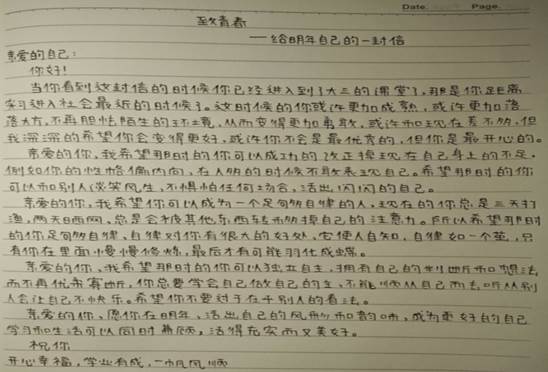 Date: Page.
致青春
——给明年自己的一封信
亲爱的自己:
你好!
当你看到这封信的时候你已经进入到了大三的课堂了,那是你距离
实习进入社会最近的时候了。这时候的你或许更加成熟,或许更加落
落大方,不再胆怯陌生的环境,从而变得更加勇敢,或许和现在差不多,但
我深深的希望你会变得更好,或许你不会是最优秀的,但你是最开心的。
亲爱的你,我希望那时的你可以成功的改正掉现在自己身上的不足。
例如你的性格偏内向,在人多的时候不敢表现自己。希望那时的你
可以和别人谈笑风生,不惧怕任何场合,活出闪闪的自己。
亲爱的你,我希望你可以成为一个足够自律的人,现在的你总是三天打
渔,两天晒网,总是会被其他东西转移掉自己的注意力。所以希望那时
的你足够自律,自律对你有很大的好处,它使人自知,自律如一个茧,只
有你在里面慢慢修炼,最后才有可能羽化成蝶。
亲爱的你,我希望那时的你可以独立自主,拥有自己的判断和想法
而不再优柔寡断,你总要学会自己做自己的主,不能顺从自己而去听从别
人会让自己不快乐。希望你不要过于在乎别人的看法。
亲爱的你,愿你在明年,活出自己的风彩和韵味,成为更好的自己
学习和生活可以同时兼顾,活得充实而又美好。
祝你
开心幸福,学业有成,一帆风顺